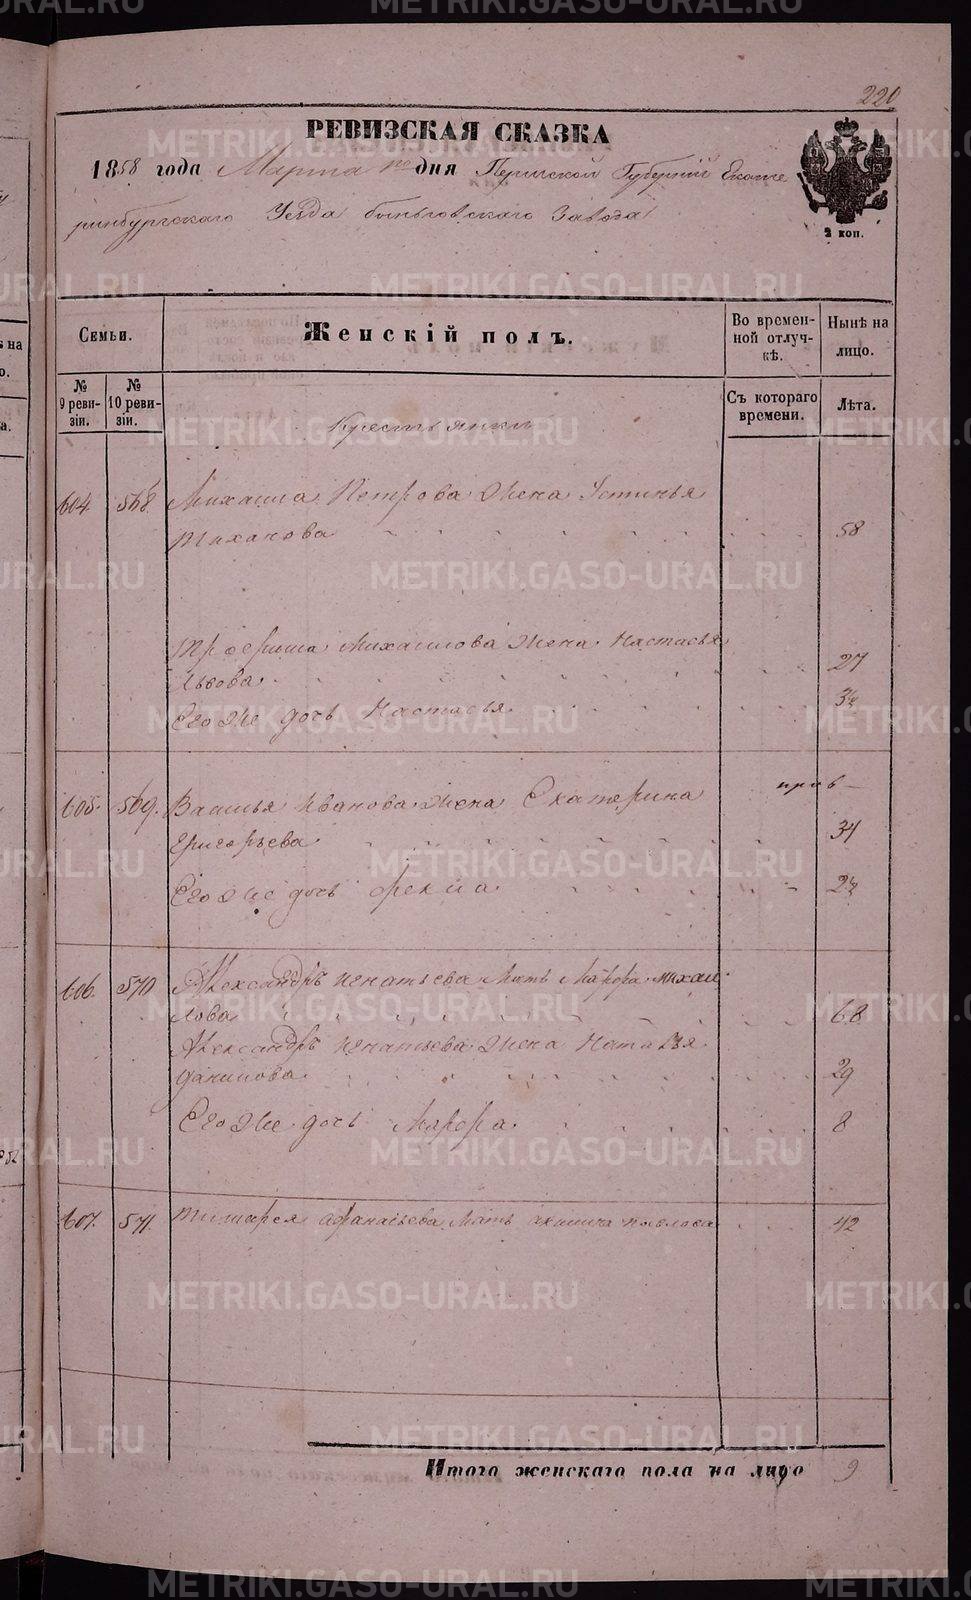 220
РЕВИЗСКАЯ СКАЗКА
1858 года Марта дня Пермской Губернии Екате
ринбургскаго Уезда Быньговскаго Завода
2 коп.
Семьи.
Женскій полъ.
Во времен-
ной отлуч-
кѣ.
Нынѣ на
лицо.
№
9 реви-
зіи.
№
10 реви-
зіи.
Съ котораго
времени.
Лѣта.
Крестьянки
604. 568 Михаила Петрова Жена Устинья
Тиханова 58
Трофима Михаилова Жена Настасья
Львова 27
Его же дочь Настасья
605. 569. Василья Иванова Жена Екатерина
Григорьева 34
Его же дочь Фекла
606. 570 Александръ Игнатьева Мать Марфа Михаи
лова 68
Александръ Игнатьева Жена Наталья
Данилова 29
Его же дочь Марфа 8
607. 571. Тимофея Афанасьева Мать Акилина Павлова 42
Итого женскаго пола на лицо 9
METRIKI.GASO-URAL.RU